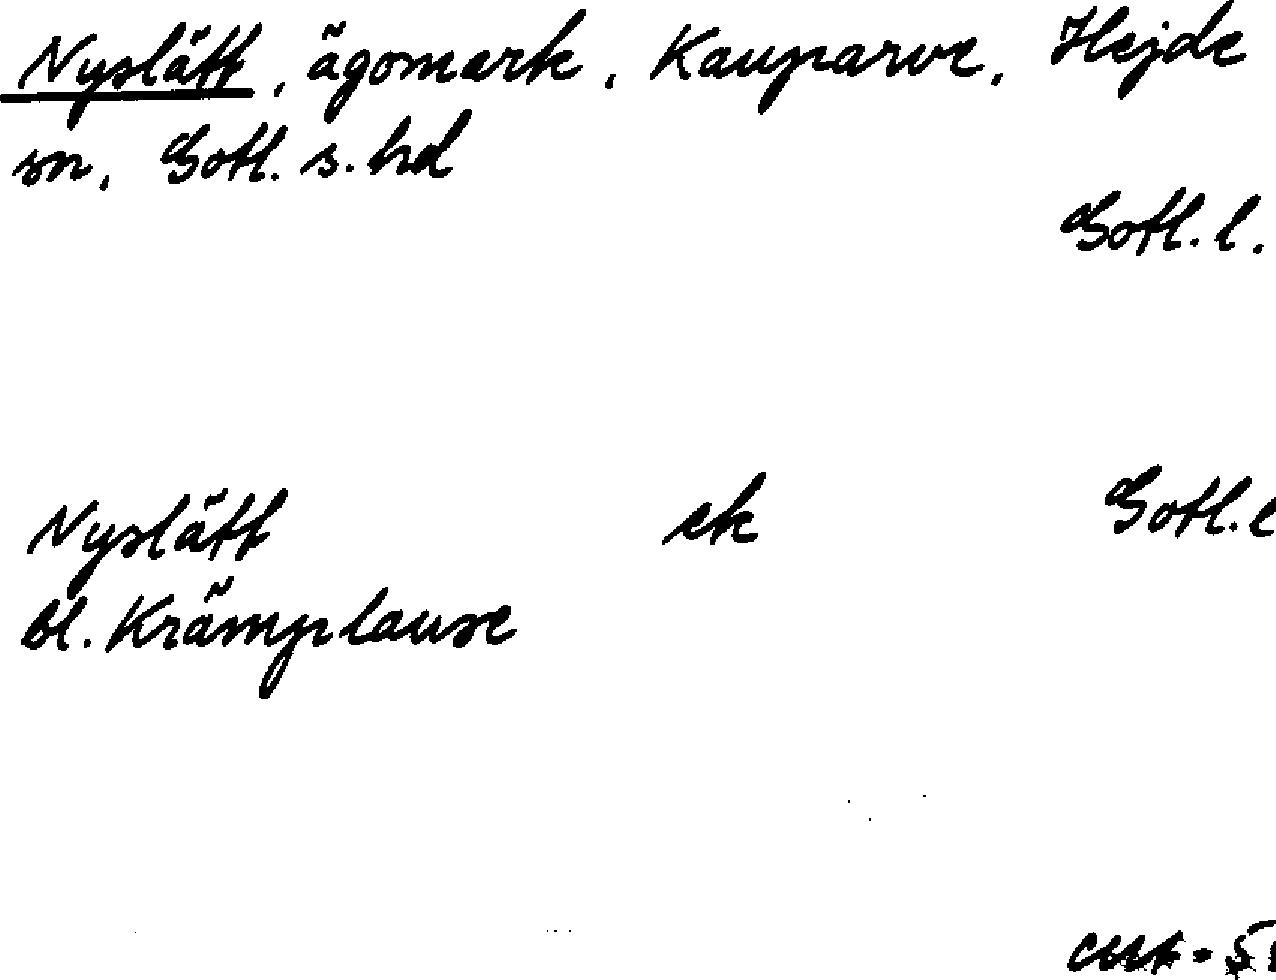 Nyslätt, ägomark, Kauparve, Hejde
sn, Gotl. s. hd
Gotl. l.
Nyslätt ek Gotl. l
bl. Krämplause